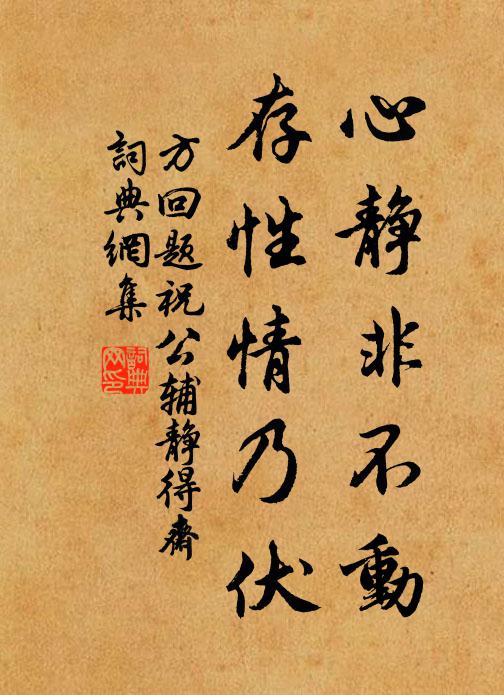 心静非不動
存性情乃伏
方回題祝公辅静得齋
詞典網集
詞典網印